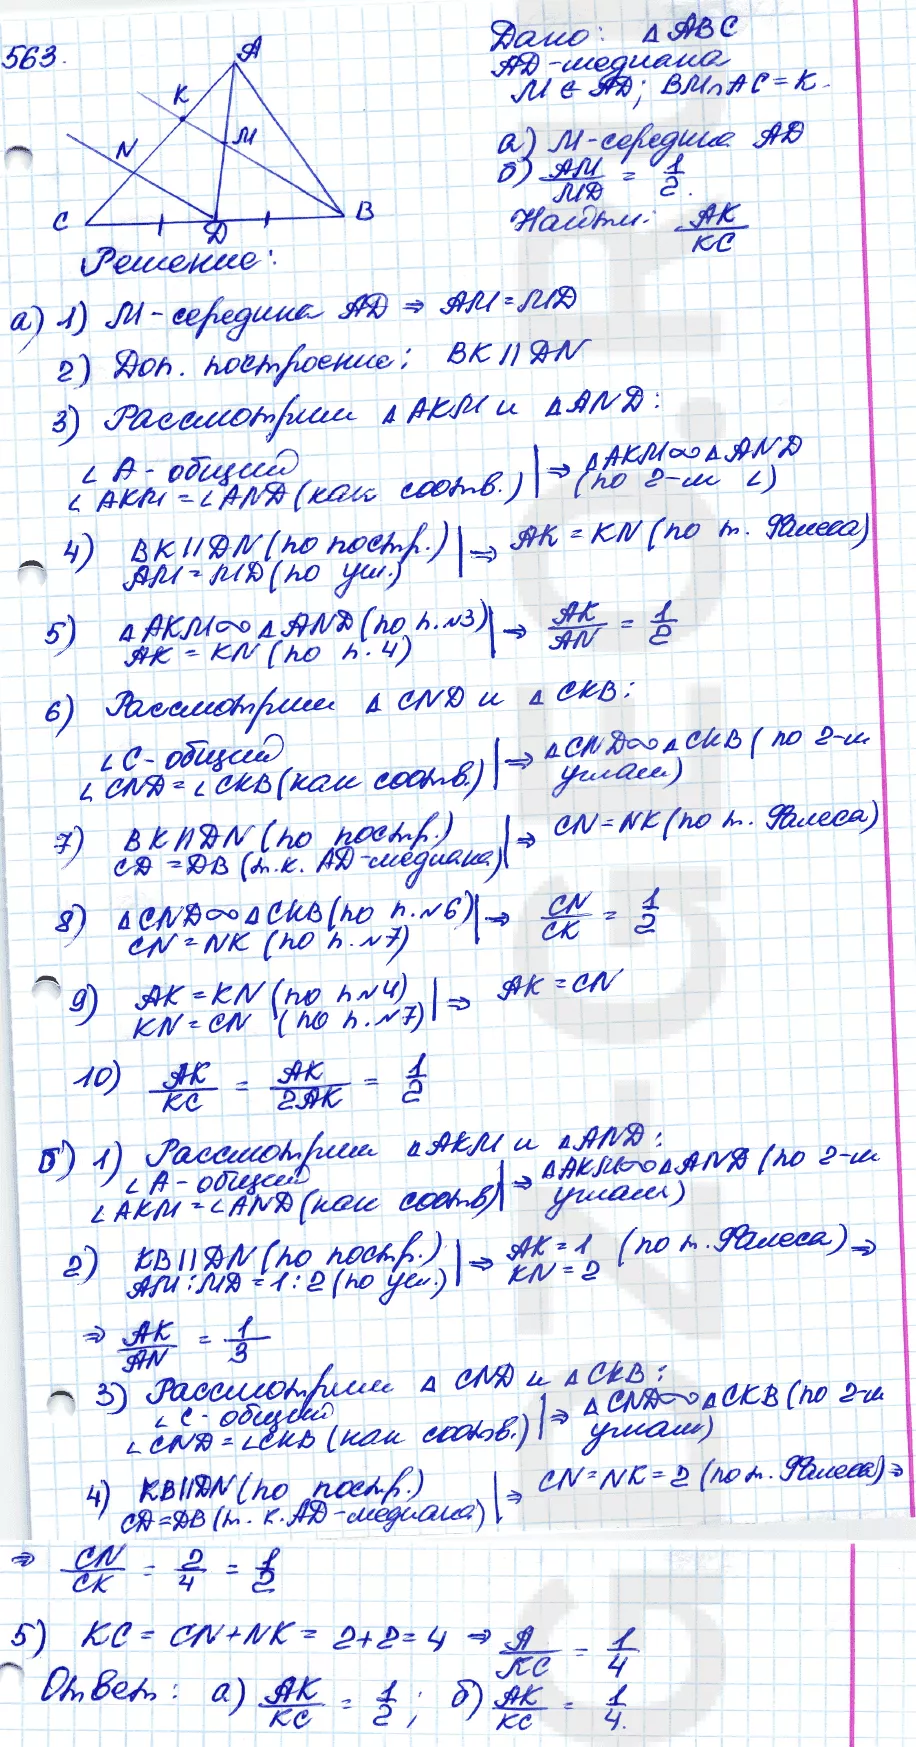 563.
A
K
M
N
C
D
B
Дано: △ABC
AD-медиана
M ∈ AD; BM∩AC = K.
а) M-середина AD
б) AM/MD = 1/2.
Найти: AK/KC
Решение:
а) 1) M-середина AD ⇒ AM=MD
2) Доп. построение: BK || DN
3) Рассмотрим △AKM и △AND:
∠A-общий
∠AKM = ∠AND (как соотв.) | ⇒ △AKM∞△AND (по 2-м ∠)
4) BK || DN (по постр.)
AM=MD (по усл.) | ⇒ AK = KN (по т. Фалеса)
5) △AKM∞△AND (по п.№3)
AK = KN (по п.4) | ⇒ AK/AN = 1/2
6) Рассмотрим △CND и △CKB:
∠C-общий
∠CND = ∠CKB (как соотв.) | ⇒ △CND∞△CKB (по 2-м углам)
7) BK || DN (по постр.)
CD = DB (т.к. AD-медиана) | ⇒ CN=NK (по т. Фалеса)
8) △CND∞△CKB (по п.№6)
CN = NK (по п.№7) | ⇒ CN/CK = 1/2
9) AK = KN (по п№4)
KN = CN (по п.№7) | ⇒ AK = CN
10) AK/KC = AK/2AK = 1/2
б) 1) Рассмотрим △AKM и △AND:
∠A-общий
∠AKM = ∠AND (как соотв) | ⇒ △AKM∞△AND (по 2-м углам)
2) KB || DN (по постр.)
AM:MD = 1:2 (по усл.) | ⇒ AK = 1
KN = 2 (по т. Фалеса) ⇒
⇒ AK/AN = 1/3
3) Рассмотрим △CND и △CKB:
∠C-общий
∠CND = ∠CKB (как соотв.) | ⇒ △CND∞△CKB (по 2-м углам)
4) KB||DN (по постр.)
CD=DB (т.к. AD-медиана) | ⇒ CN=NK=2 (по т. Фалеса) ⇒
⇒ CN/CK = 2/4 = 1/2
5) KC = CN+NK = 2+2=4 ⇒ A/KC = 1/4
Ответ: а) AK/KC = 1/2; б) AK/KC = 1/4.